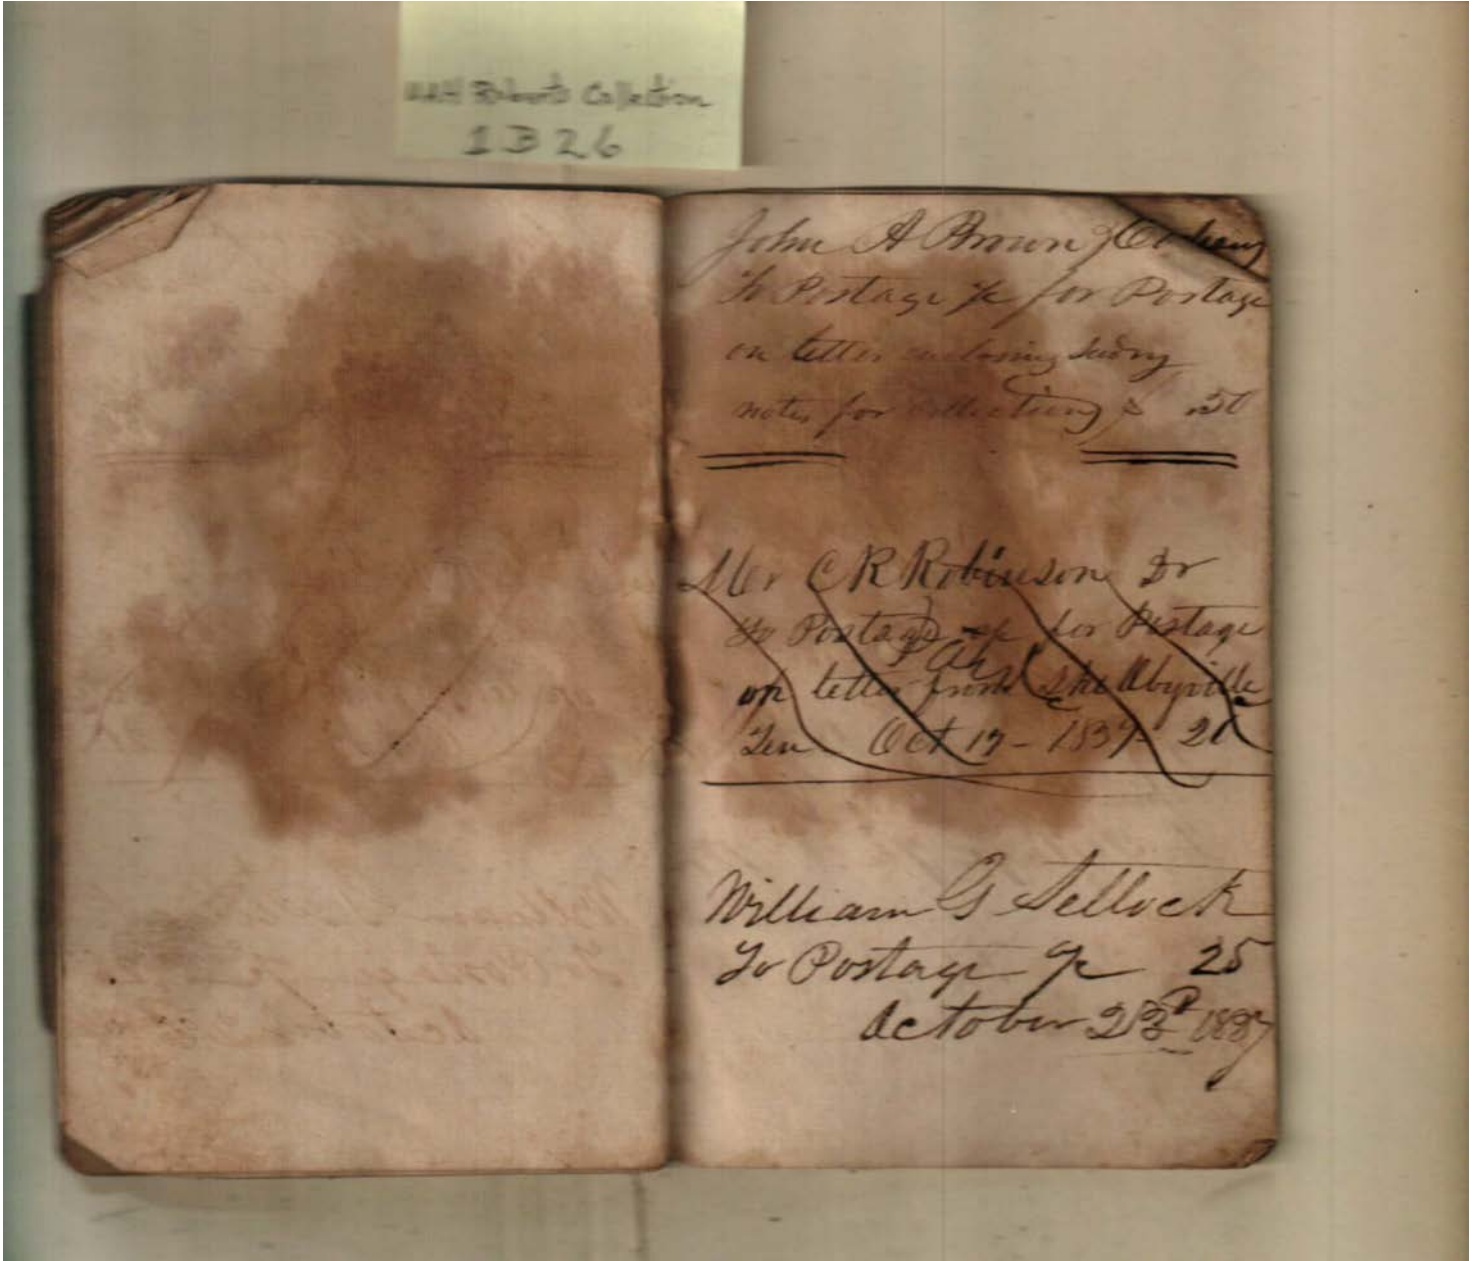 UAH Roberts Collection
1326
John A Brown &
To Postage a/c for Postage
on letter enclosing sundry
notes for collection $ .50
Mr C R Robinson Dr
To Postage a/c for Postage
Paid
on letter from Shelbyville
Ten Oct 17 - 1837 - 20
William G Sellock
To Postage a/c 25
October 23d 1837